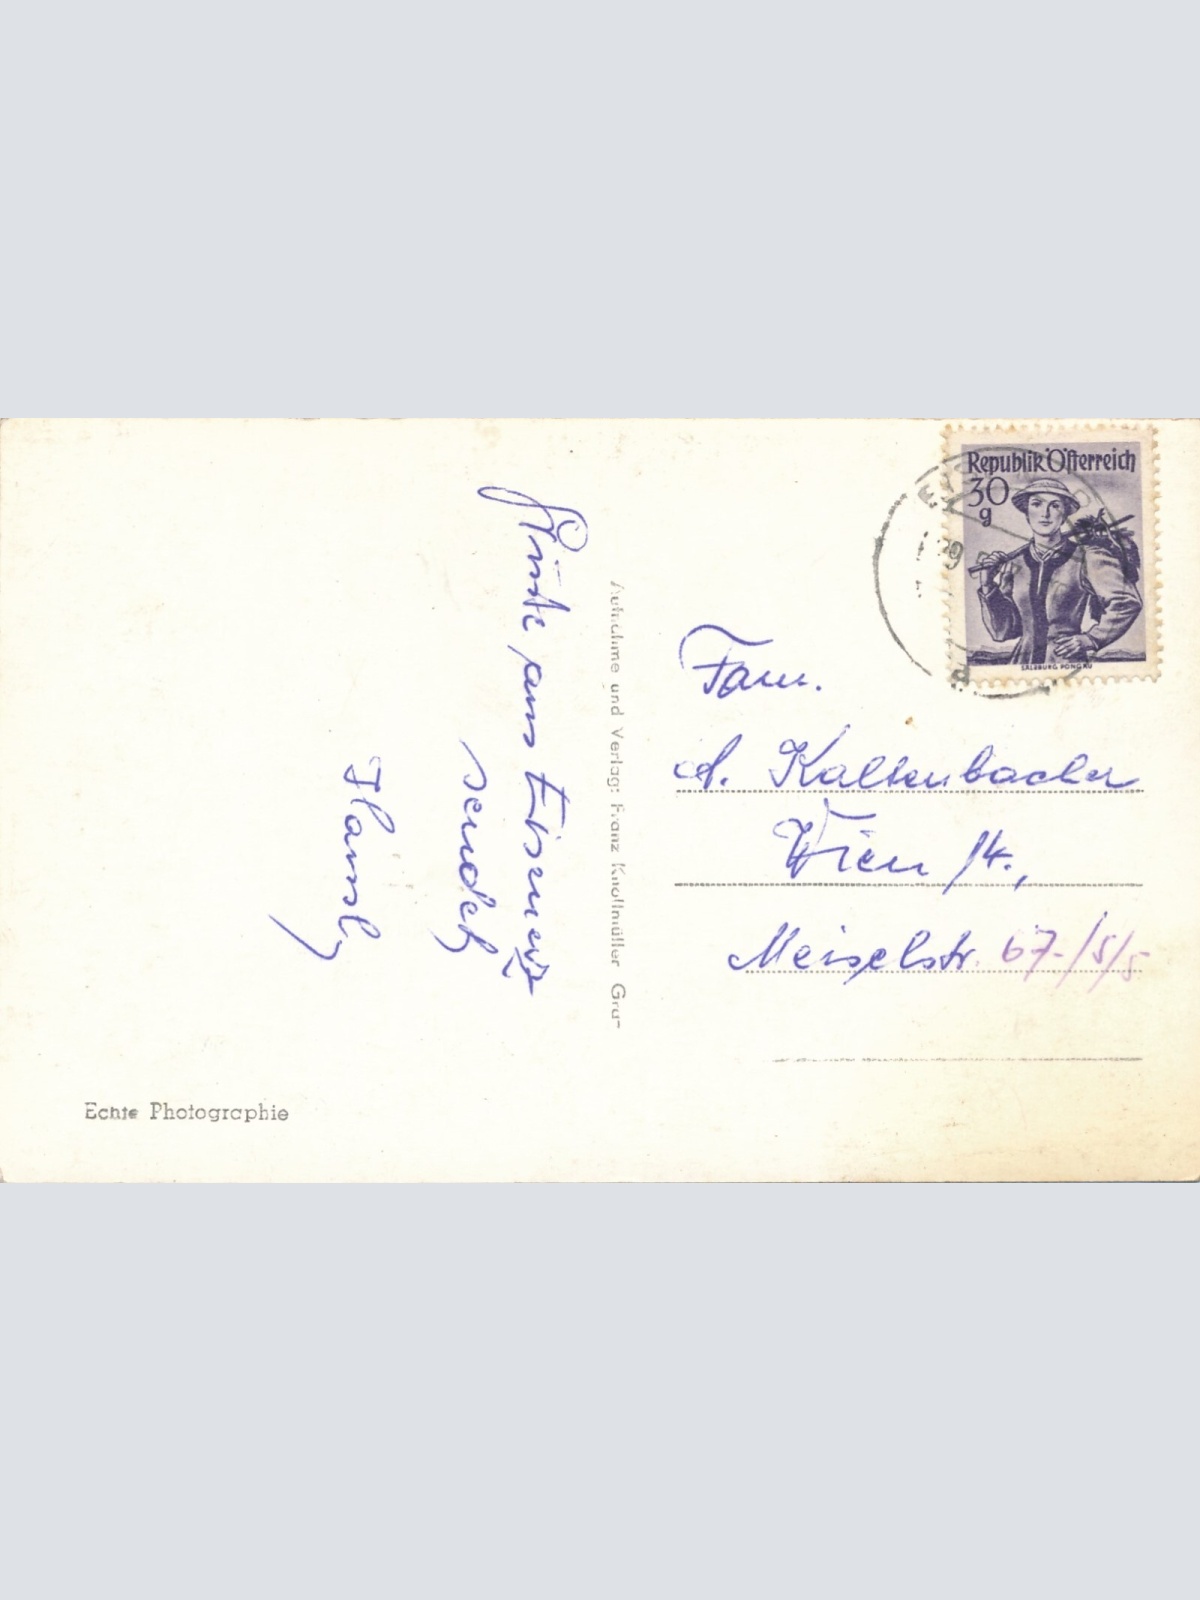 Grüße aus Eisenerz
sendet
Hansl
Aufnahme und Verlag: Franz Knollmüller Gra-
Echte Photographie
Republik Österreich
30
g
SALZBURG PONGAU
Fam.
A. Kaltenbacher
Wien 14.,
Meiselstr. 67-/5/5